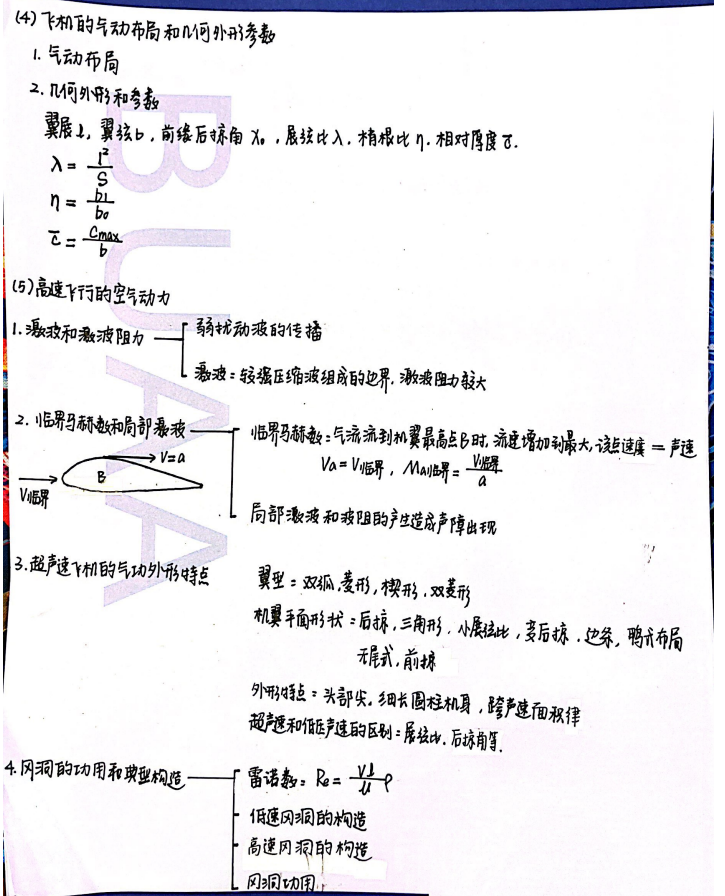 (4) 飞机的气动布局和几何外形参数
1. 气动布局
2. 几何外形和参数
翼展l, 翼弦b, 前缘后掠角χ₀, 展弦比λ, 梢根比η. 相对厚度c̅.
λ = l²/S
η = b₁/b₀
c̅ = Cmax/b
(5) 高速飞行的空气动力
1. 激波和激波阻力
弱扰动波的传播
激波: 较强压缩波组成的边界, 激波阻力较大
2. 临界马赫数和局部激波
临界马赫数: 气流流到机翼最高点B时, 流速增加到最大, 该点速度 = 声速
Va = V临界, Ma临界 = V临界/a
V=a
B
V临界
局部激波和波阻的产生造成声障出现
3. 超声速飞机的气功外形特点
翼型: 双弧, 菱形, 楔形, 双菱形
机翼平面形状: 后掠, 三角形, 小展弦比, 变后掠, 边条, 鸭式布局
无尾式, 前掠
外形特点: 头部尖, 细长圆柱机身, 跨声速面积律
超声速和低亚声速的区别: 展弦比, 后掠角等.
4. 风洞的功用和典型构造
雷诺数: Re = Vl/μ ρ
低速风洞的构造
高速风洞的构造
风洞功用
BUAA